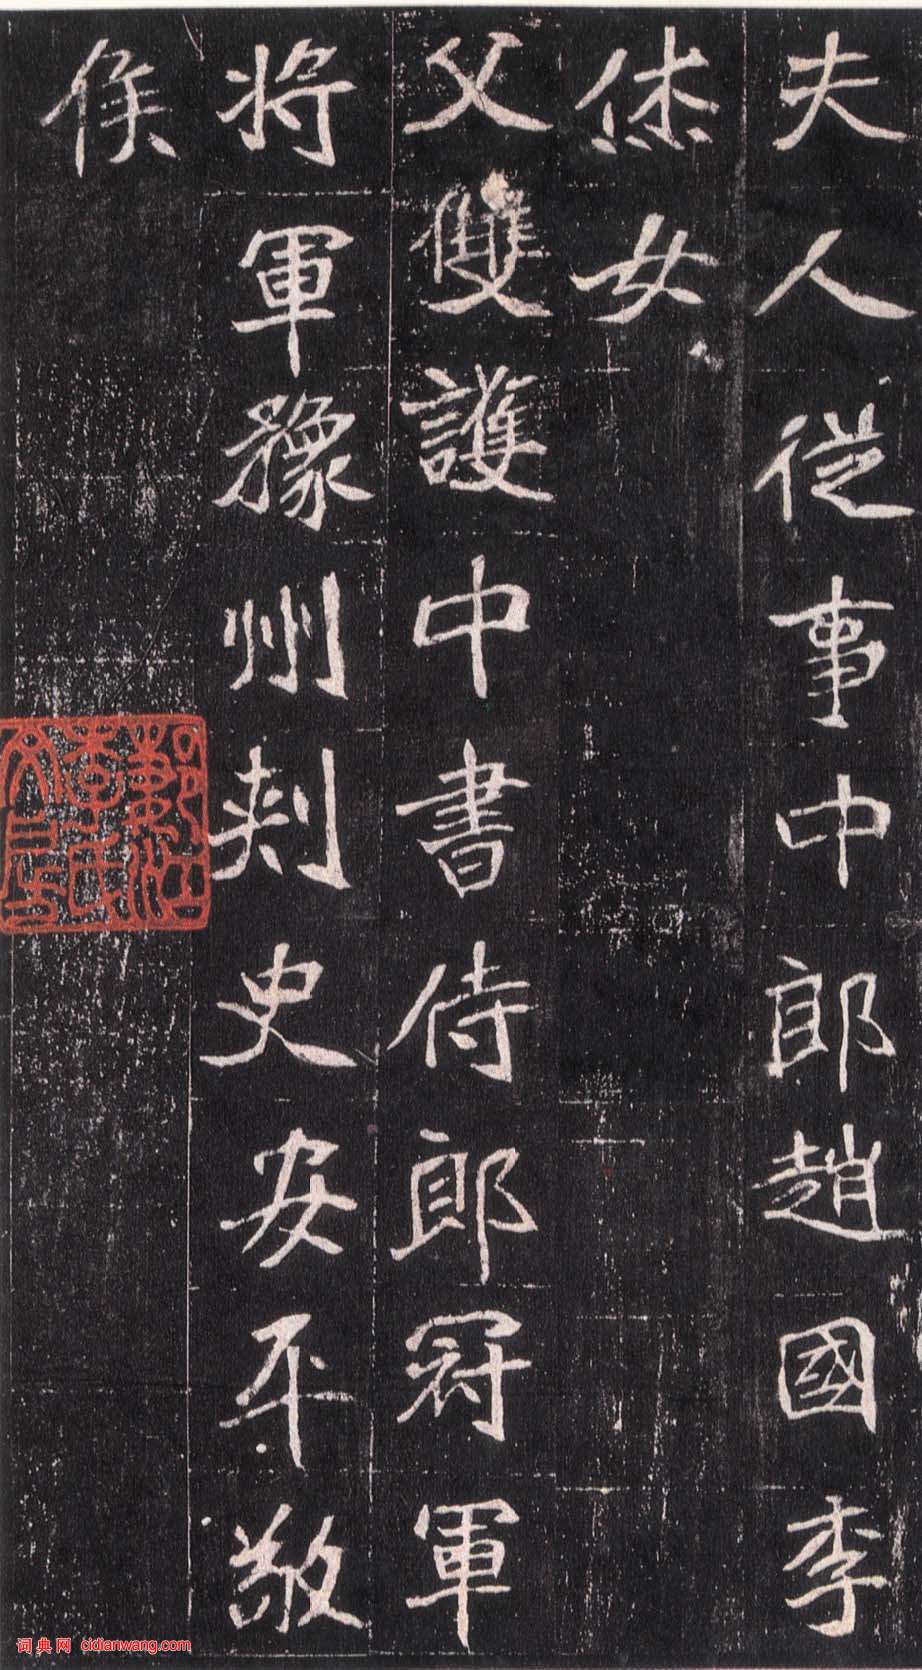 夫人從事中郎趙國李
恷女
父雙護中書侍郎冠軍
將軍豫州刺史安平敬
侯
词典网 cidianwang.com